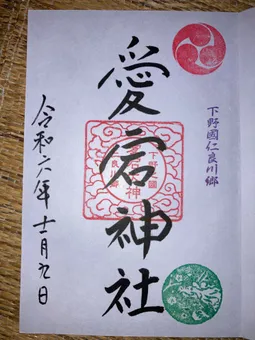 下野國仁良川郷
愛宕神社
令和六年十一月九日